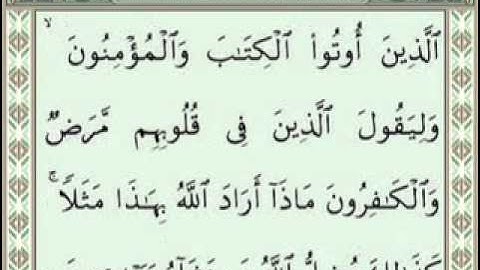 ٱلَّذِينَ أُوتُوا۟ ٱلْكِتَٰبَ وَٱلْمُؤْمِنُونَ ۙ
وَلِيَقُولَ ٱلَّذِينَ فِى قُلُوبِهِم مَّرَضٌ
وَٱلْكَٰفِرُونَ مَاذَآ أَرَادَ ٱللَّهُ بِهَٰذَا مَثَلًا ۚ